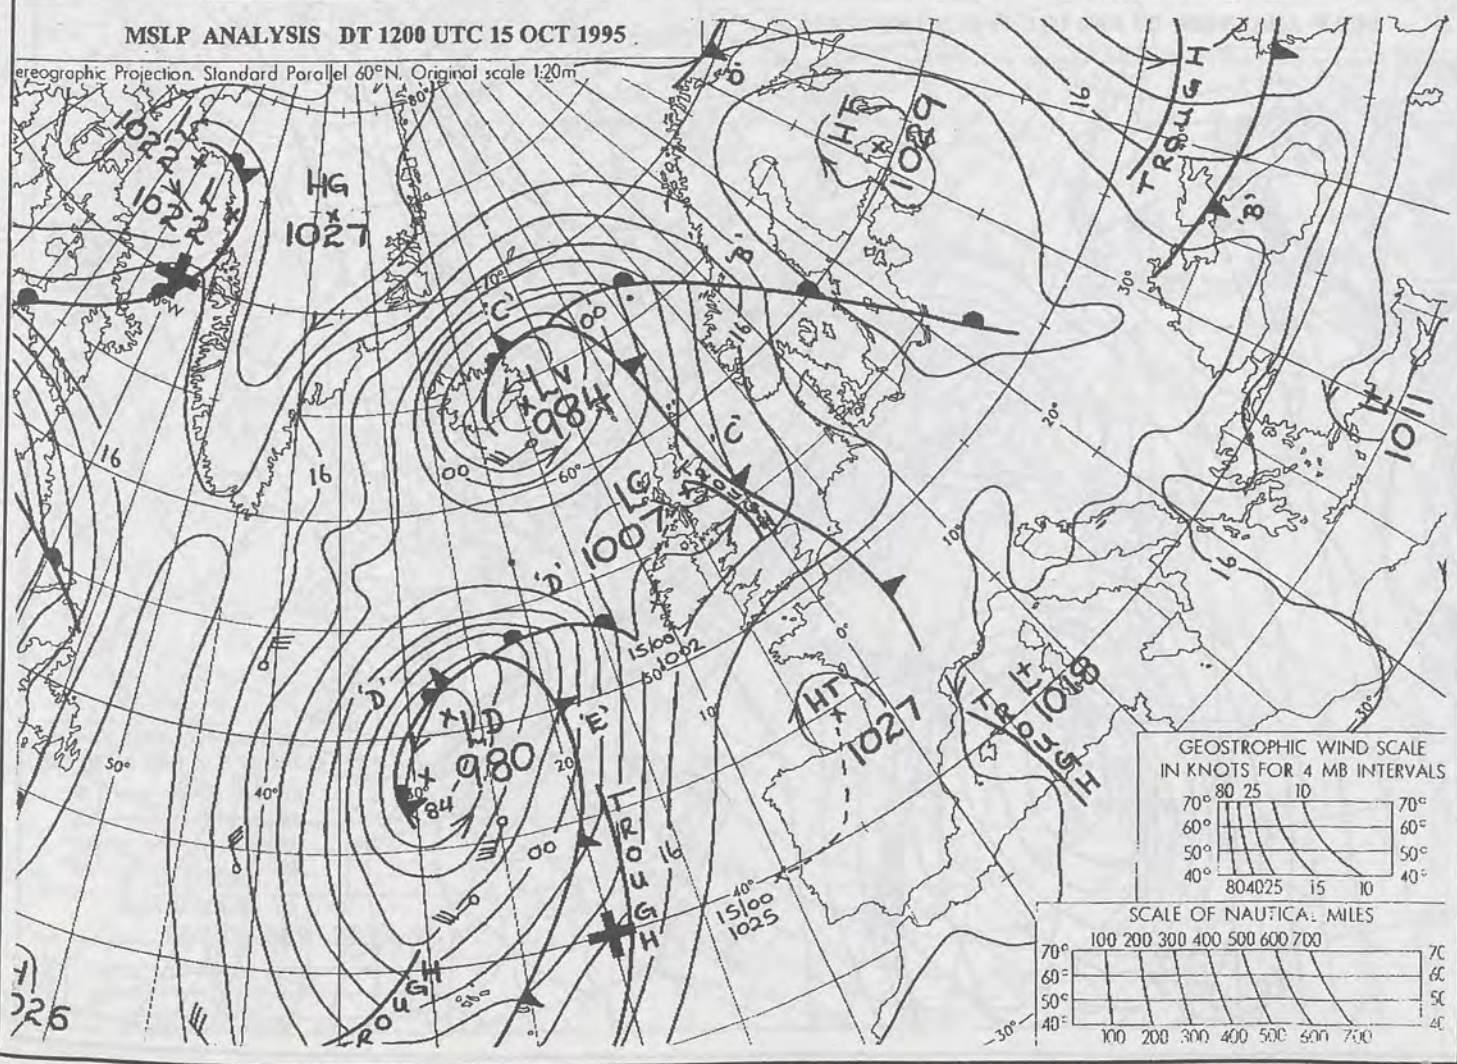 MSLP ANALYSIS DT 1200 UTC 15 OCT 1995
ereographic Projection. Standard Parallel 60°N. Original scale 1:20m
80°
'D'
HT
1029
16
TROUGH
'B'
L
1022
L
1022
HG
1027
70°
'C'
00
'B'
30°
16
LV
984
20°
LT
1011
'C'
16
16
00
60°
LG
1007
TROUGH
10°
16
'D'
15/00
1002
50°
0°
'D'
LD
980
'E'
10°
HT
1027
LT
1018
TROUGH
30°
50°
40°
30°
84
20°
00
TROUGH
16
40°
15/00
1025
TROUGH
H
026
30°
GEOSTROPHIC WIND SCALE
IN KNOTS FOR 4 MB INTERVALS
80 25 10
70° 70°
60° 60°
50° 50°
40° 40°
80 40 25 15 10
SCALE OF NAUTICAL MILES
100 200 300 400 500 600 700
70° 70
60° 60
50° 50
40° 40
100 200 300 400 500 600 700